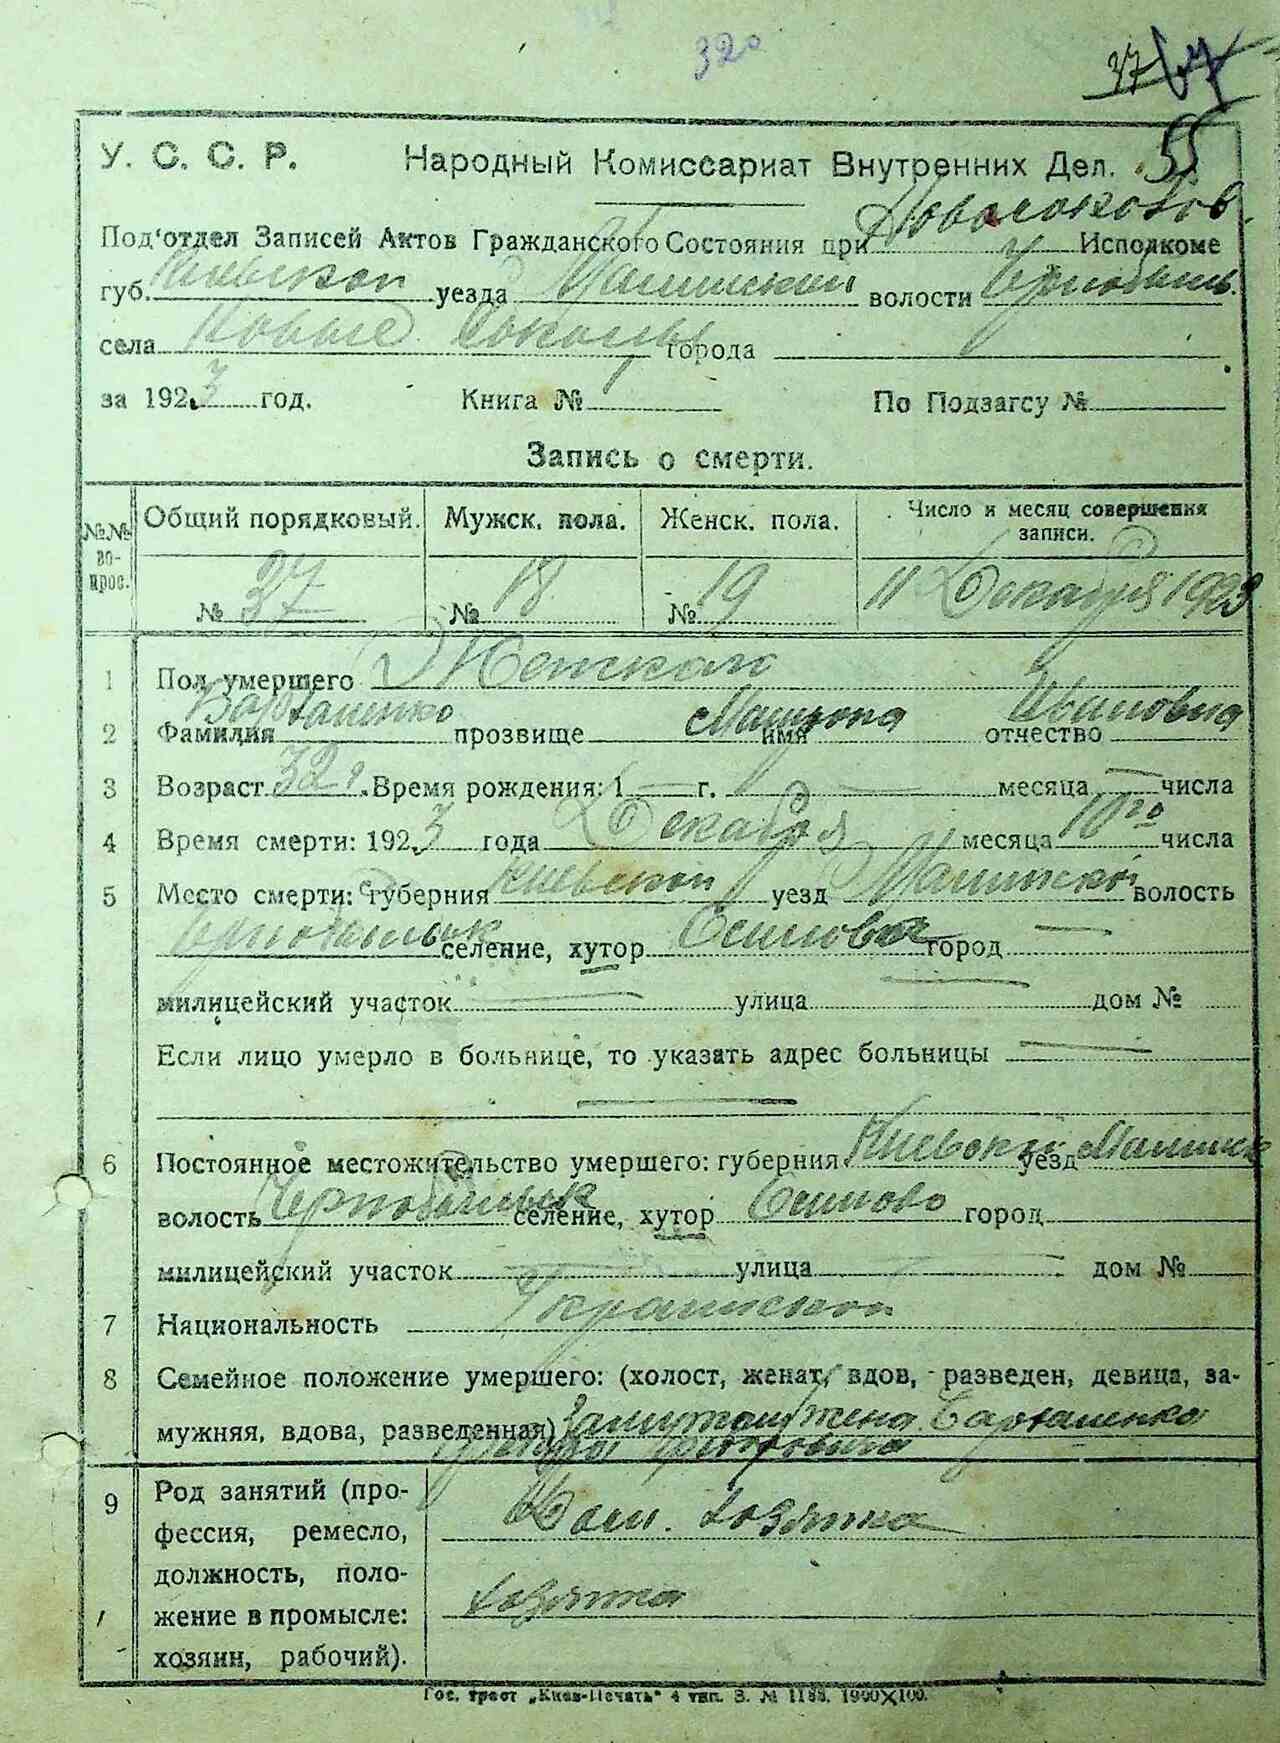 320
37 67
У. С. С. Р. Народный Комиссариат Внутренних Дел. 55
Под'отдел Записей Актов Гражданского Состояния при Новосоколов. Исполкоме
губ. Киевской уезда Малинской волости Чернобыль.
села Новые Соколы города
за 1923 год. Книга № По Подзагсу №
Запись о смерти.
№№ вопрос. Общий порядковый. Мужск. пола. Женск. пола. Число и месяц совершения записи.
№ 37 № 18 № 19 11 Декабря 1923
1 Пол умершего Женская
2 Фамилия прозвище имя отчество Ивановна
3 Возраст 32 г. Время рождения: 1 — г. — месяца — числа
4 Время смерти: 1923 года Декабря месяца 10го числа
5 Место смерти: губерния Киевской уезд Малинской волость
селение, хутор Осиково город —
милицейский участок — улица — дом №
Если лицо умерло в больнице, то указать адрес больницы —
—
6 Постоянное местожительство умершего: губерния Киевской уезд Малинск
волость селение, хутор город
милицейский участок — улица — дом №
7 Национальность Украинской
8 Семейное положение умершего: (холост, женат, вдов, разведен, девица, за-
мужняя, вдова, разведенная) жена
9 Род занятий (про-
фессия, ремесло, Дом. хозяйка
должность, поло-
жение в промысле: хозяйка
хозяин, рабочий).
Гос. трест „Киев-Печать" 4 тип. З. № 1188. 1900×100.